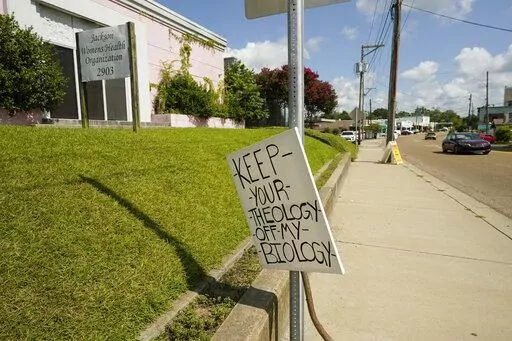 Jackson
Womens Health
Organization
2903
-KEEP-
-YOUR-
-THEOLOGY
-OFF-MY-
-BIOLOGY-